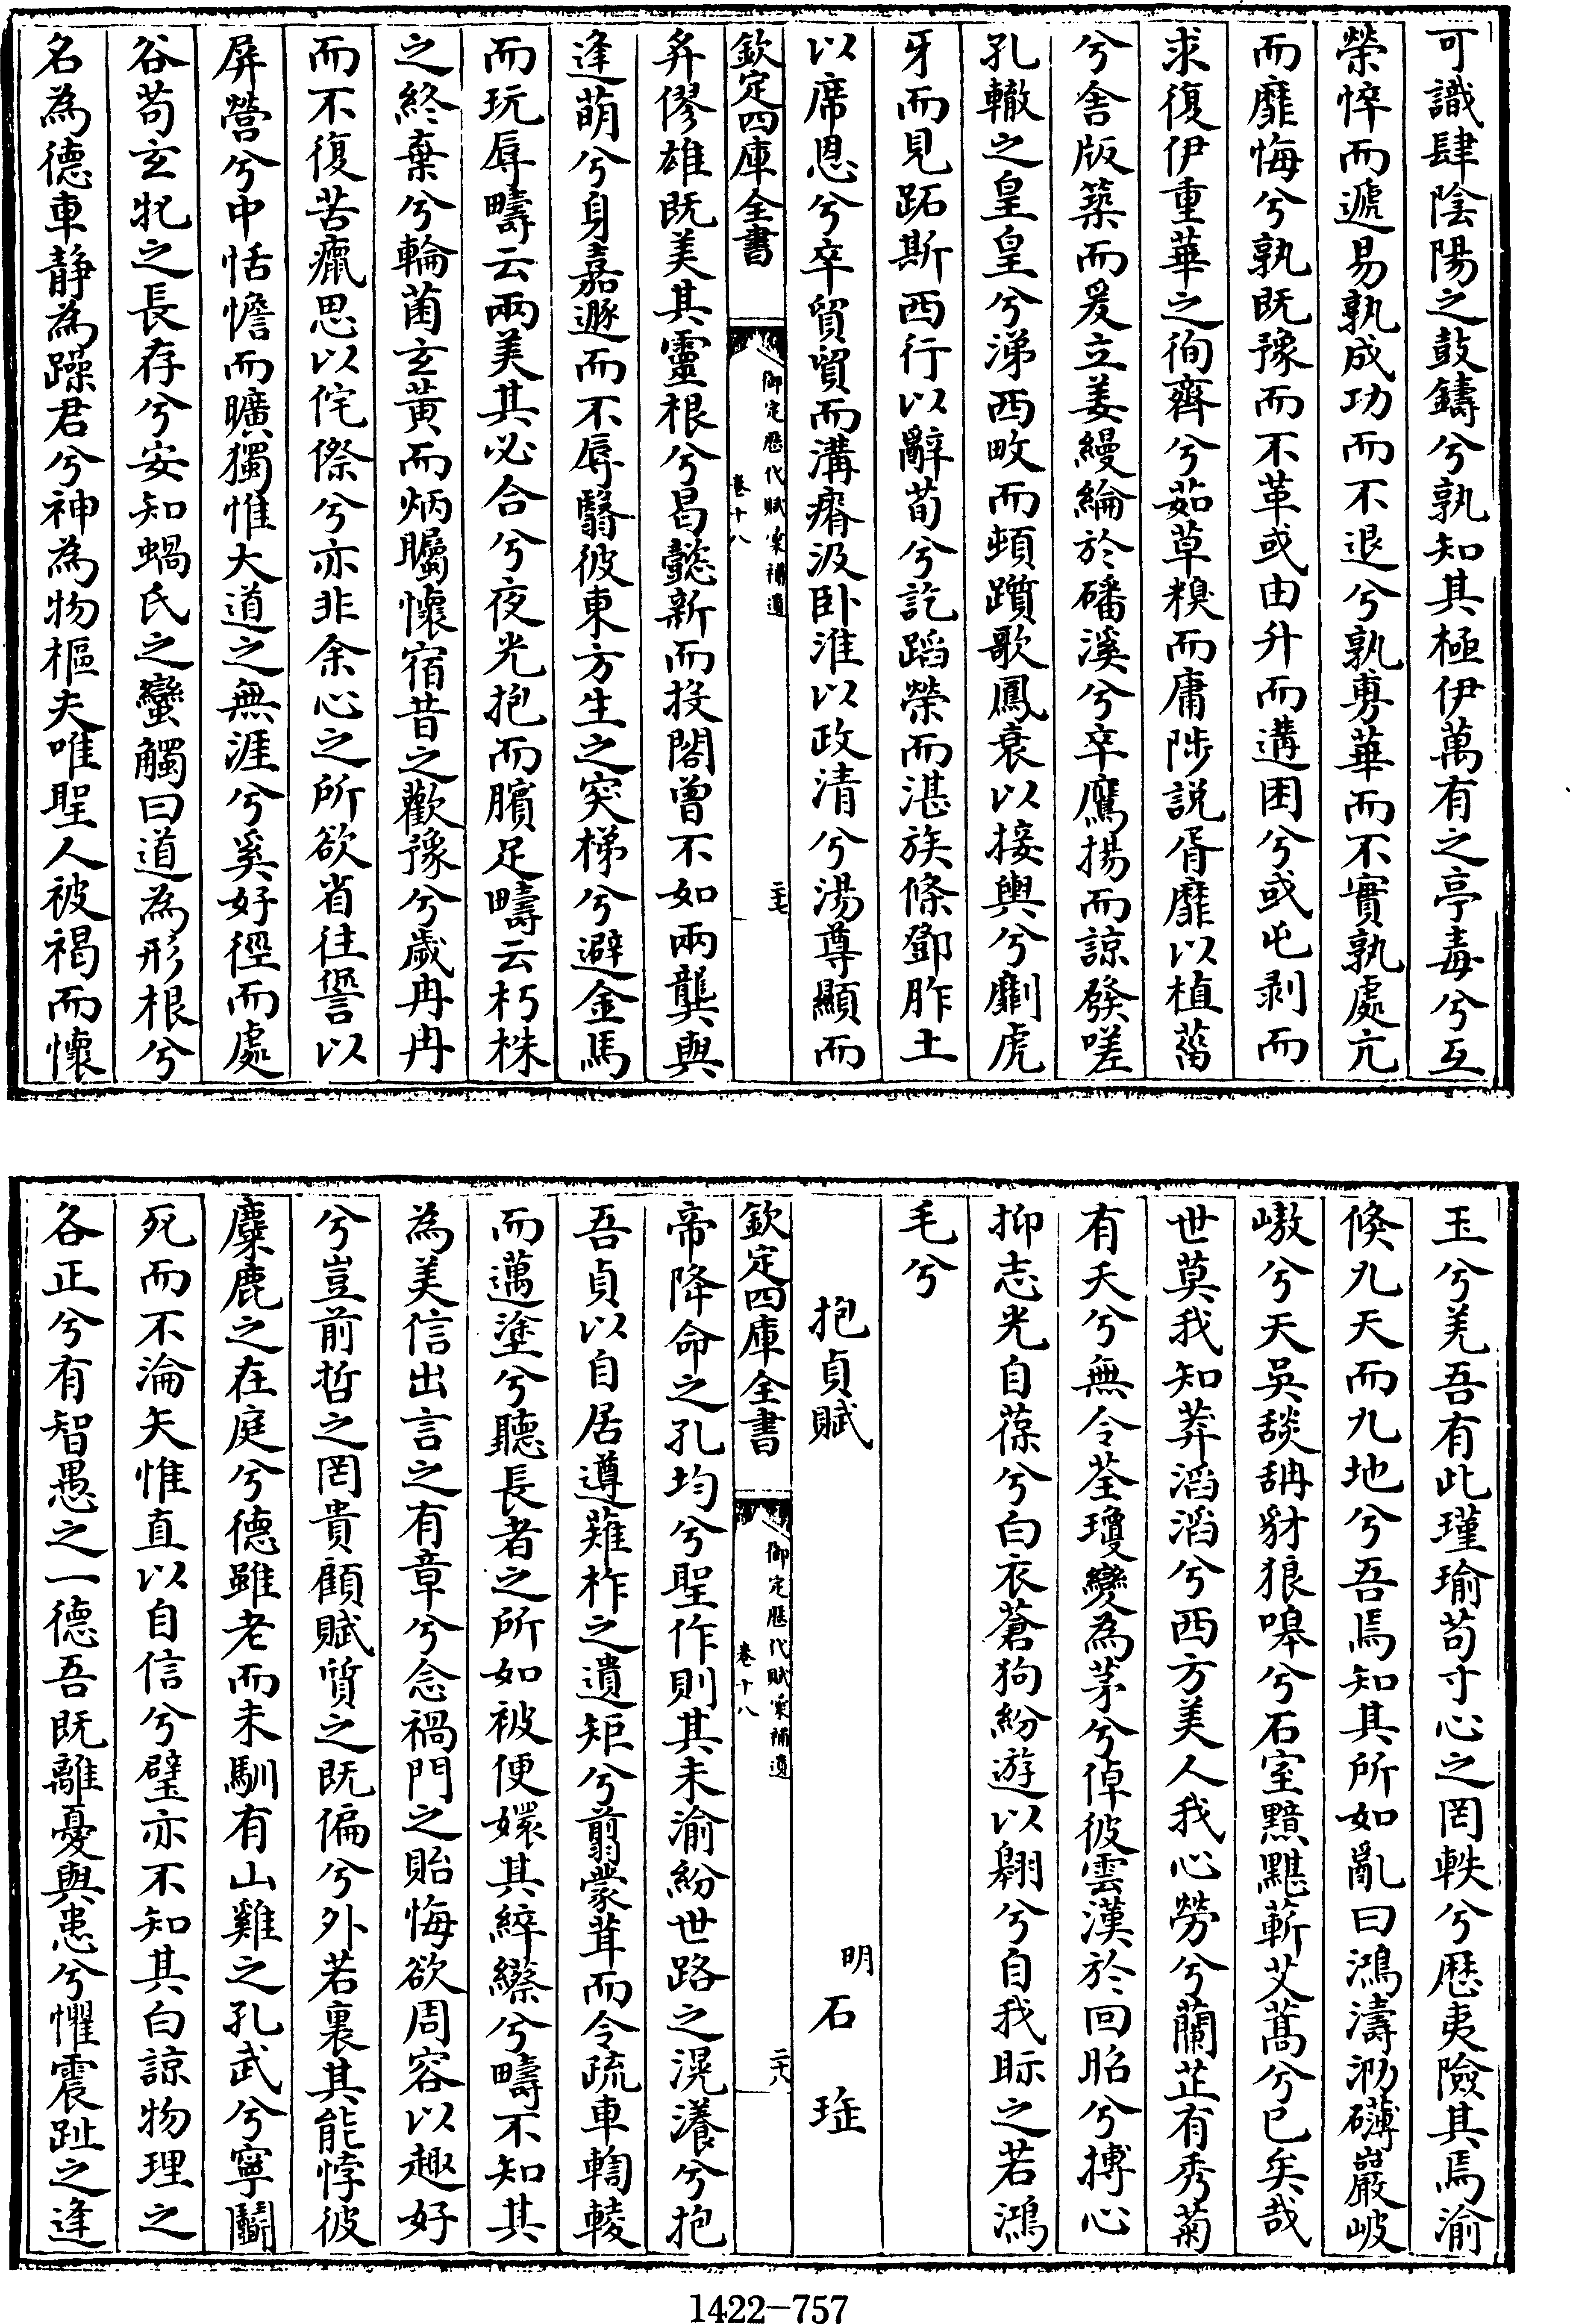 可識肆陰陽之鼓鑄兮孰知其極伊萬有之亭毒兮互
榮悴而遞易孰成功而不退兮孰旉華而不實孰處亢
而靡悔兮孰既豫而不革或由升而遘困兮或屯剥而
求復伊重華之徇齊兮茹草糗而庸陟説胥靡以植菑
兮舍版築而爰立姜縵綸於磻溪兮卒鷹揚而諒發嗟
孔轍之皇皇兮涕西畋而頓躓歌鳳衰以接輿兮劘虎
牙而見跖斯西行以辭荀兮訖蹈榮而湛族條鄧胙土
以席恩兮卒貿貿而溝瘠汲卧淮以政清兮湯尊顯而
欽定四庫全書
御定歷代賦彙補遺
卷十八
二十七
舛僇雄既美其靈根兮曷懿新而投閣曾不如兩龔與
逢萌兮身嘉遯而不辱翳彼東方生之突梯兮避金馬
而玩辱疇云兩美其必合兮夜光抱而臏足疇云朽株
之終棄兮輪菌玄黄而炳矚懷宿昔之歡豫兮歲冉冉
而不復苦癙思以侘傺兮亦非余心之所欲省往諐以
屏營兮中恬憺而曠獨惟大道之無涯兮奚好徑而處
谷苟玄牝之長存兮安知蝸氏之蠻觸曰道為形根兮
名為德車静為躁君兮神為物樞夫唯聖人被褐而懷
玉兮羌吾有此瑾瑜苟寸心之罔軼兮歷夷險其焉渝
倏九天而九地兮吾焉知其所如亂曰鴻濤沕礴巖岥
嶅兮天吳舕舑豺狼嘷兮石室黯黮蘄艾蒿兮已矣哉
世莫我知莽滔滔兮西方美人我心勞兮蘭芷有秀菊
有夭兮無令荃瓊變為茅兮倬彼雲漢於回昭兮搏心
抑志光自葆兮白衣蒼狗紛遊以翱兮自我眎之若鴻
毛兮
抱貞賦
明石珤
欽定四庫全書
御定歷代賦彙補遺
卷十八
二十八
帝降命之孔均兮聖作則其未渝紛世路之滉瀁兮抱
吾貞以自居遵蕥柞之遺矩兮翦蒙茸而令疏車輖輘
而邁塗兮聽長者之所如被便嬛其綷縩兮疇不知其
為美信出言之有章兮念禍門之貽悔欲周容以趣好
兮豈前哲之罔貴顧賦質之既偏兮外若裏其能悖彼
麋鹿之在庭兮德雖老而未馴有山雞之孔武兮寧鬭
死而不淪矢惟直以自信兮璧亦不知其白諒物理之
各正兮有智愚之一德吾既離憂與患兮懼震趾之逢
1422-757